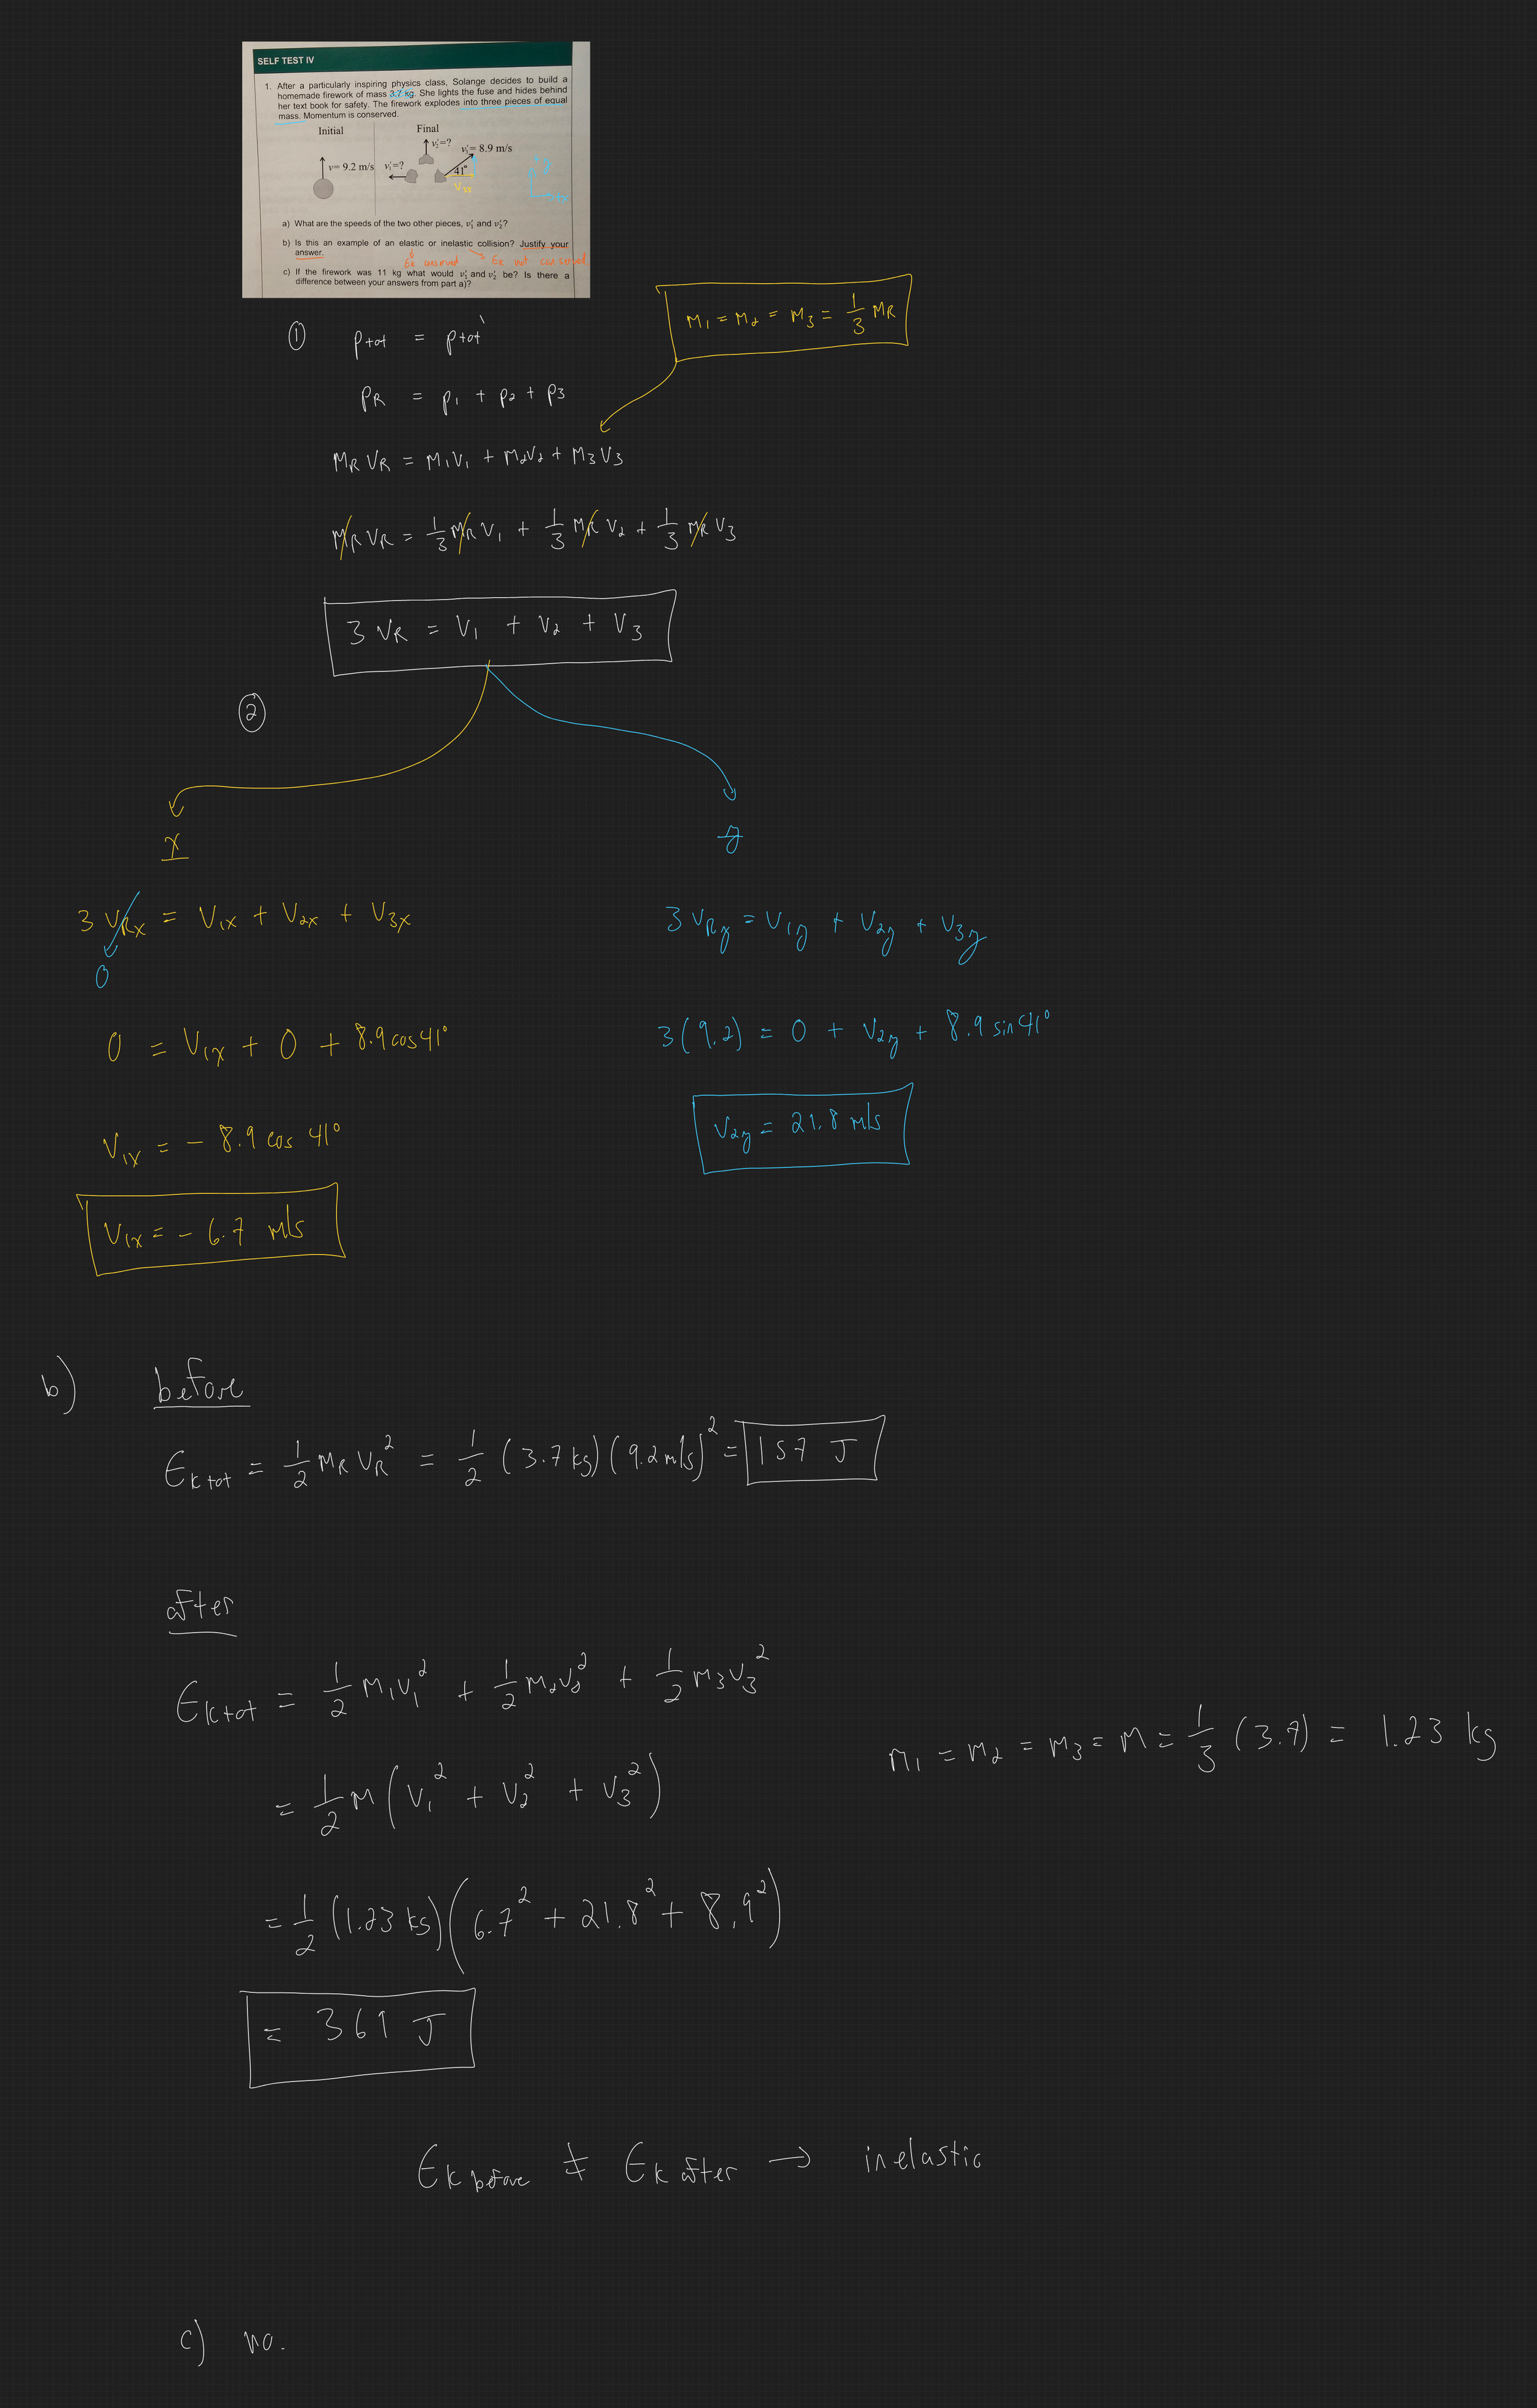 SELF TEST IV
1. After a particularly inspiring physics class, Solange decides to build a
homemade firework of mass 3.7 kg. She lights the fuse and hides behind
her text book for safety. The firework explodes into three pieces of equal
mass. Momentum is conserved.
Initial
Final
v= 9.2 m/s
v₁'=?
v₂'=?
v₃'= 8.9 m/s
41°
V3x
a) What are the speeds of the two other pieces, v₁' and v₂'?
b) Is this an example of an elastic or inelastic collision? Justify your
answer.
Ek conserved
Ek not conserved
c) If the firework was 11 kg what would v₁' and v₂' be? Is there a
difference between your answers from part a)?
M₁ = M₂ = M₃ = 1/3 MR
① Ptot = Ptot'
PR = P1 + P2 + P3
MR VR = M1V1 + M2V2 + M3V3
MR VR = 1/3 MR V1 + 1/3 MR V2 + 1/3 MR V3
3 VR = V1 + V2 + V3
②
x
3 VRx = V1x + V2x + V3x
0
0 = V1x + 0 + 8.9 cos 41°
V1x = - 8.9 cos 41°
V1x = - 6.7 m/s
y
3 VRy = V1y + V2y + V3y
3(9.2) = 0 + V2y + 8.9 sin 41°
V2y = 21.8 m/s
b) before
Ektot = 1/2 MR VR² = 1/2 (3.7 kg)(9.2 m/s)² = 157 J
after
Ektot = 1/2 M1V1² + 1/2 M2V2² + 1/2 M3V3²
m1 = m2 = m3 = m = 1/3 (3.7) = 1.23 kg
= 1/2 M (V1² + V2² + V3²)
= 1/2 (1.23 kg)(6.7² + 21.8² + 8.9²)
= 361 J
Ek before ≠ Ek after → inelastic
c) no.